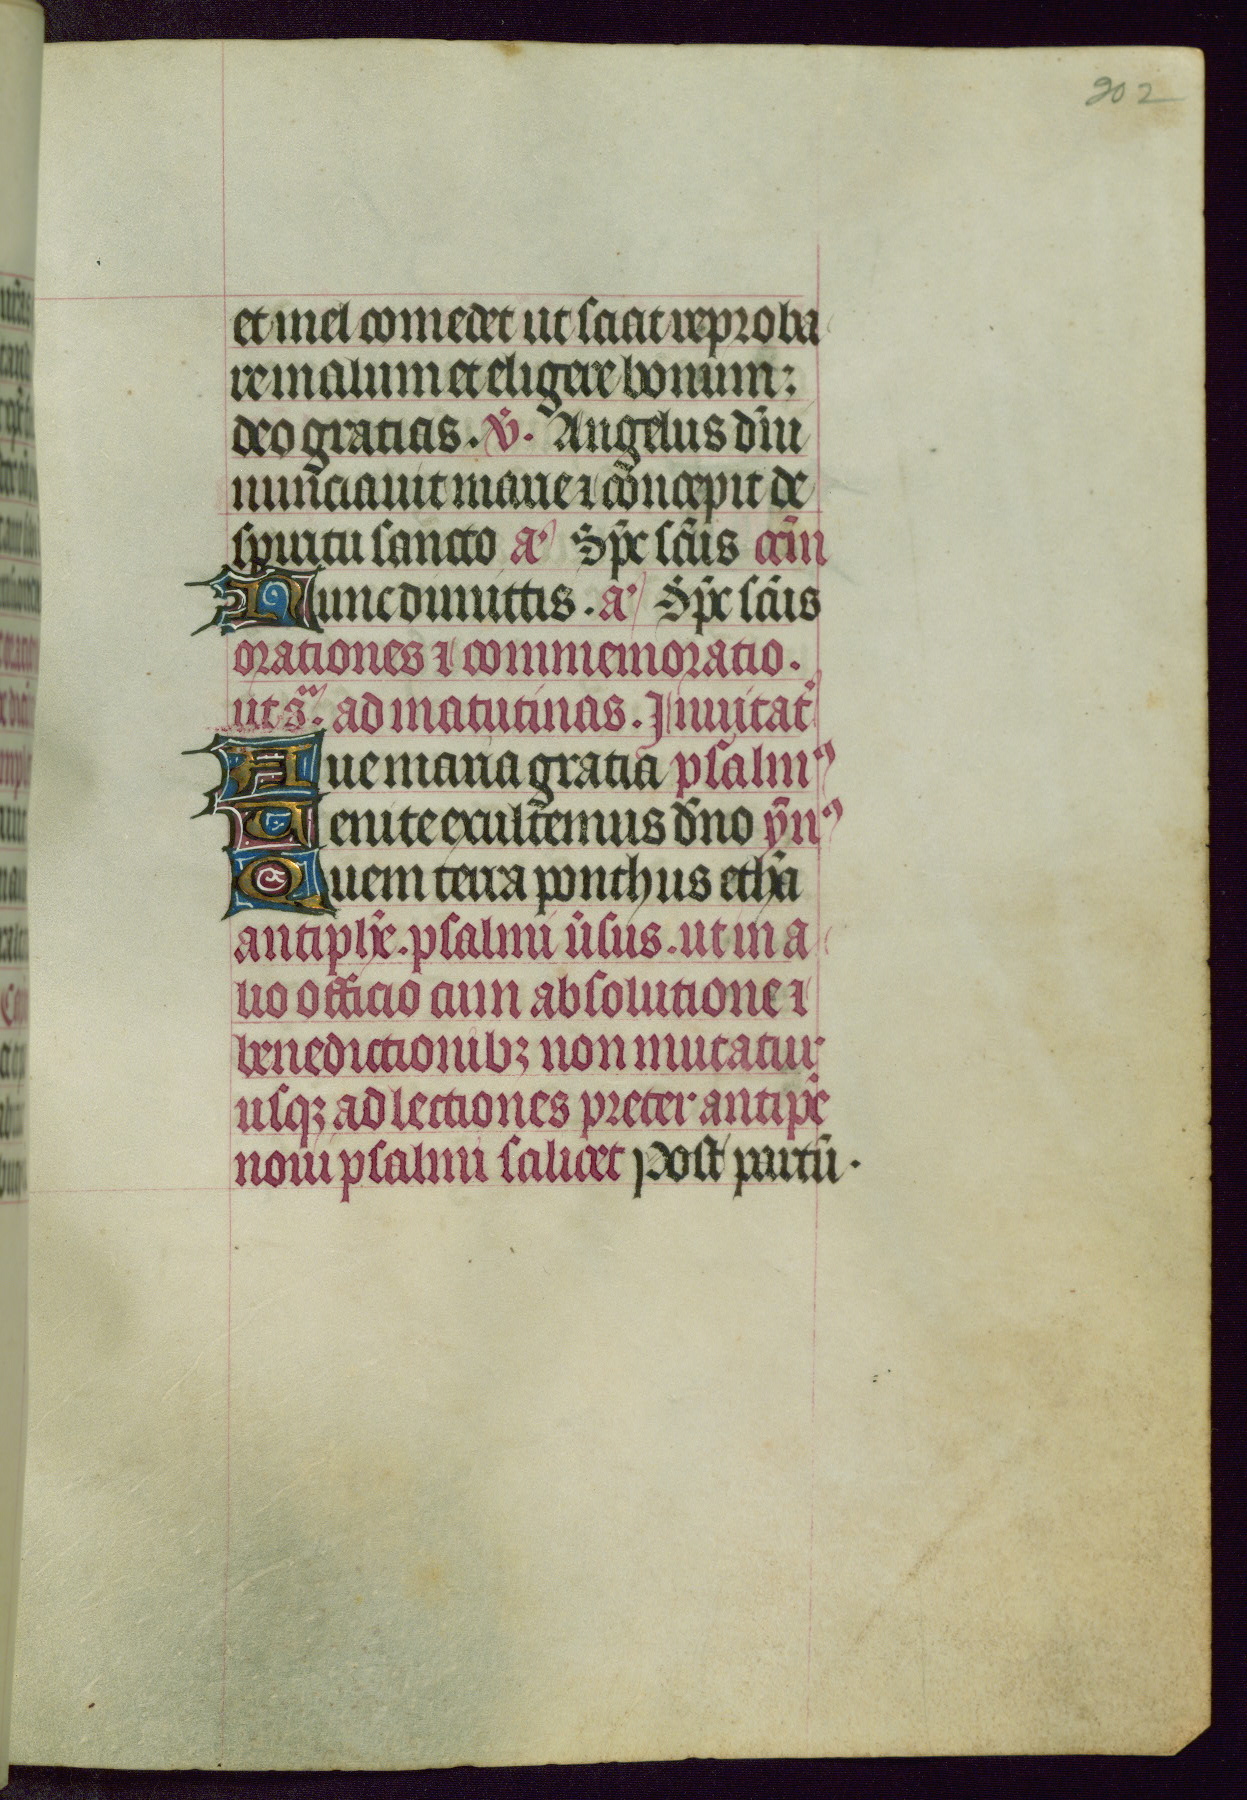 202
et mel comedet ut sciat reproba
re malum et eligere bonum :
deo gratias . v̄ . Angelus dn̄i
nun̄ciauit marie ⁊ con̄cepit de
spiritu sancto a͛ Sp̄c sc̄us cān
Nunc dimittis . a͛ Sp̄c sc̄us
orationes ⁊ commemoratio .
ut sᵃ . ad matutinas . Inuitat͛
Aue maria gratia psalmꝰ
Uenite exult̄emus dn̄o ȳnꝰ
Quem terra ponthus eth̄a
antiph̄e . psalmi ūsus . ut in a
lio officio cum absolutione ⁊
benedictionibꝫ non mutatur
usqꝫ ad lectiones preter antip̄e
noui psalmi scilicet Post partū .